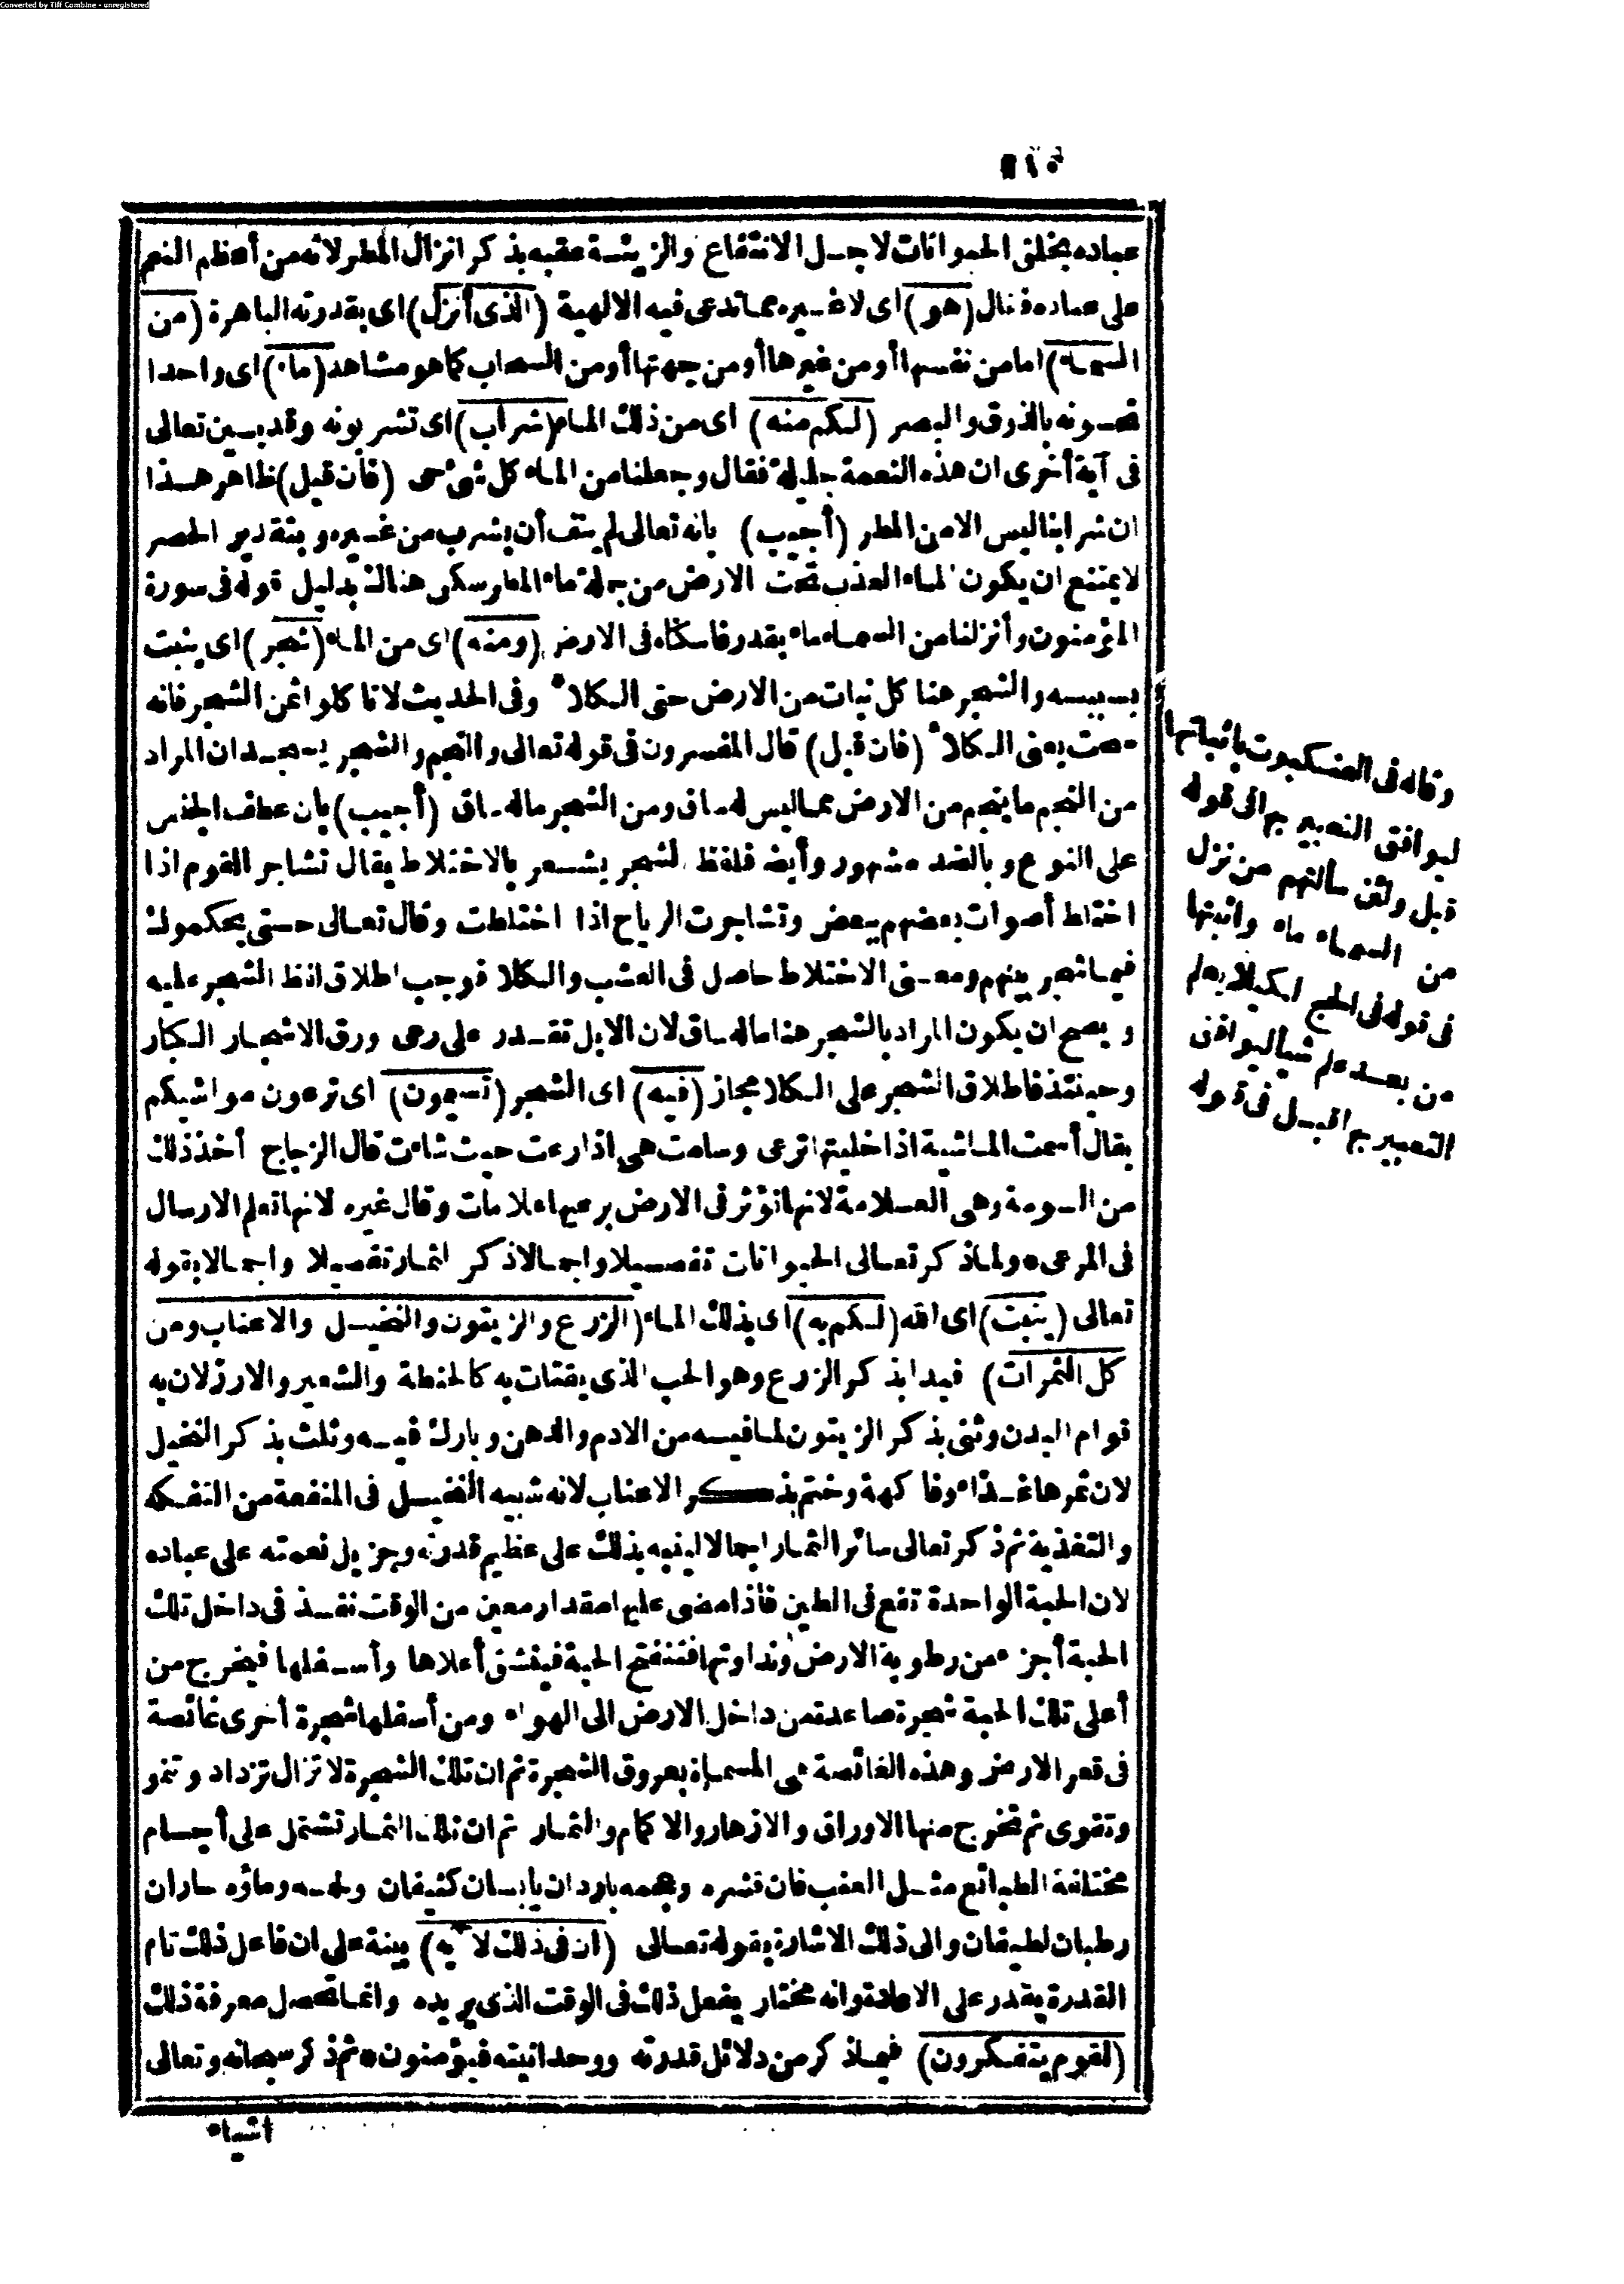 Converted by Tiff Combine - unregistered
عباده بخلق الحيوانات لاجل الانتفاع والزينة عقبه بذكر انزال المطر لانه من أعظم النعم
على عباده فقال (هو) اى لاغيره مما تدعى فيه الالهية (الذى أنزل) اى بقدرته الباهرة (من
السماء) امامن نفسها أو من غيرها أو من جهتها أو من السحاب كما هو مشاهد (ماء) اى واحدا
تحسونه بالذوق والبصر (لكم منه) اى من ذلك الماء (شراب) اى تشربونه وقد بين تعالى
فى آية أخرى ان هذه النعمة جليلة فقال وجعلنا من الماء كل شئ حى (فان قيل) ظاهر هذا
ان شرابنا ليس الا من المطر (أجيب) بانه تعالى لم ينف أن يشرب من غيره وبتقدير الحصر
لا يمتنع ان يكون الماء العذب تحت الارض من جملة ماء المطر سكن هناك بدليل قوله فى سورة
المؤمنون وأنزلنا من السماء ماء بقدر فاسكناه فى الارض (ومنه) اى من الماء (شجر) اى ينبت
بسببه والشجر هنا كل نبات من الارض حتى الكلأ وفى الحديث لا تأكلوا ثمن الشجر فانه
سحت يعنى الكلأ (فان قيل) قال المفسرون فى قوله تعالى والنجم والشجر يسجدان المراد
من النجم ما ينجم من الارض مما ليس له ساق ومن الشجر ماله ساق (أجيب) بان عطف الجنس
على النوع وبالضد مشهور وأيضا فلفظ الشجر يشعر بالاختلاط يقال تشاجر القوم اذا
اختلط أصوات بعضهم ببعض وتشاجرت الرياح اذا اختلطت وقال تعالى حتى يحكموك
فيما شجر بينهم ومعنى الاختلاط حاصل فى العشب والكلا فوجب اطلاق لفظ الشجر عليه
ويصح ان يكون المراد بالشجر هنا ماله ساق لان الابل تقدر على رعى ورق الاشجار الكبار
وحينئذ فاطلاق الشجر على الكلا مجاز (فيه) اى الشجر (تسيمون) اى ترعون مواشيكم
يقال أسمت الماشية اذا خليتها ترعى وسامت هى اذا رعت حيث شاءت قال الزجاج أخذ ذلك
من السومة وهى العلامة لانها تؤثر فى الارض برعيها علامات وقال غيره لانها تعلم الارسال
فى المرعى * ولما ذكر تعالى الحيوانات تفصيلا واجمالا ذكر الثمار تفصيلا واجمالا بقوله
تعالى (ينبت) اى الله (لكم به) اى بذلك الماء (الزرع والزيتون والنخيل والاعناب ومن
كل الثمرات) فبدا بذكر الزرع وهو الحب الذى يقتات به كالحنطة والشعير والارز لان به
قوام البدن وثنى بذكر الزيتون لما فيه من الادم والدهن وبارك فيه وثلث بذكر النخيل
لان ثمرها غذاء وفاكهة وختم بذكر الاعناب لانه شبيه النخيل فى المنفعة من التفكه
والتغذية ثم ذكر تعالى سائر الثمار اجمالا لينبه بذلك على عظيم قدرته وجزيل نعمته على عباده
لان الحبة الواحدة تقع فى الطين فاذا مضى عليها مقدار معين من الوقت نفذ فى داخل تلك
الحبة أجزاء من رطوبة الارض ونداوتها فتنتفخ الحبة فينشق أعلاها وأسفلها فيخرج من
أعلى تلك الحبة شجرة صاعدة من داخل الارض الى الهواء ومن أسفلها شجرة أخرى غائصة
فى قعر الارض وهذه الغائصة هى المسماة بعروق الشجرة ثم ان تلك الشجرة لا تزال تزداد وتنمو
وتقوى ثم تخرج منها الاوراق والازهار والاكمام والثمار ثم ان تلك الثمار تشتمل على أجسام
مختلفة الطبائع مثل العنب فان قشره وعجمه باردان يابسان كثيفان ولحمه وماؤه حاران
رطبان لطيفان والى ذلك الاشارة بقوله تعالى (ان فى ذلك لآية) بينة على ان فاعل ذلك تام
القدرة يقدر على الاعادة وانه مختار يفعل ذلك فى الوقت الذى يريده وانما تحصل معرفة ذلك
(لقوم يتفكرون) فيما ذكر من دلائل قدرته ووحدانيته فيؤمنون * ثم ذكر سبحانه وتعالى
اشياء
وقاله فى العنكبوت باثباتها
ليوافق التعبير بها فى قوله
قبل ولئن سألتهم من نزل
من السماء ماء واثبتها
فى قوله فى الحج لكيلا يعلم
من بعد علم شيأ ليوافق
التعبير بها قبل فى قوله